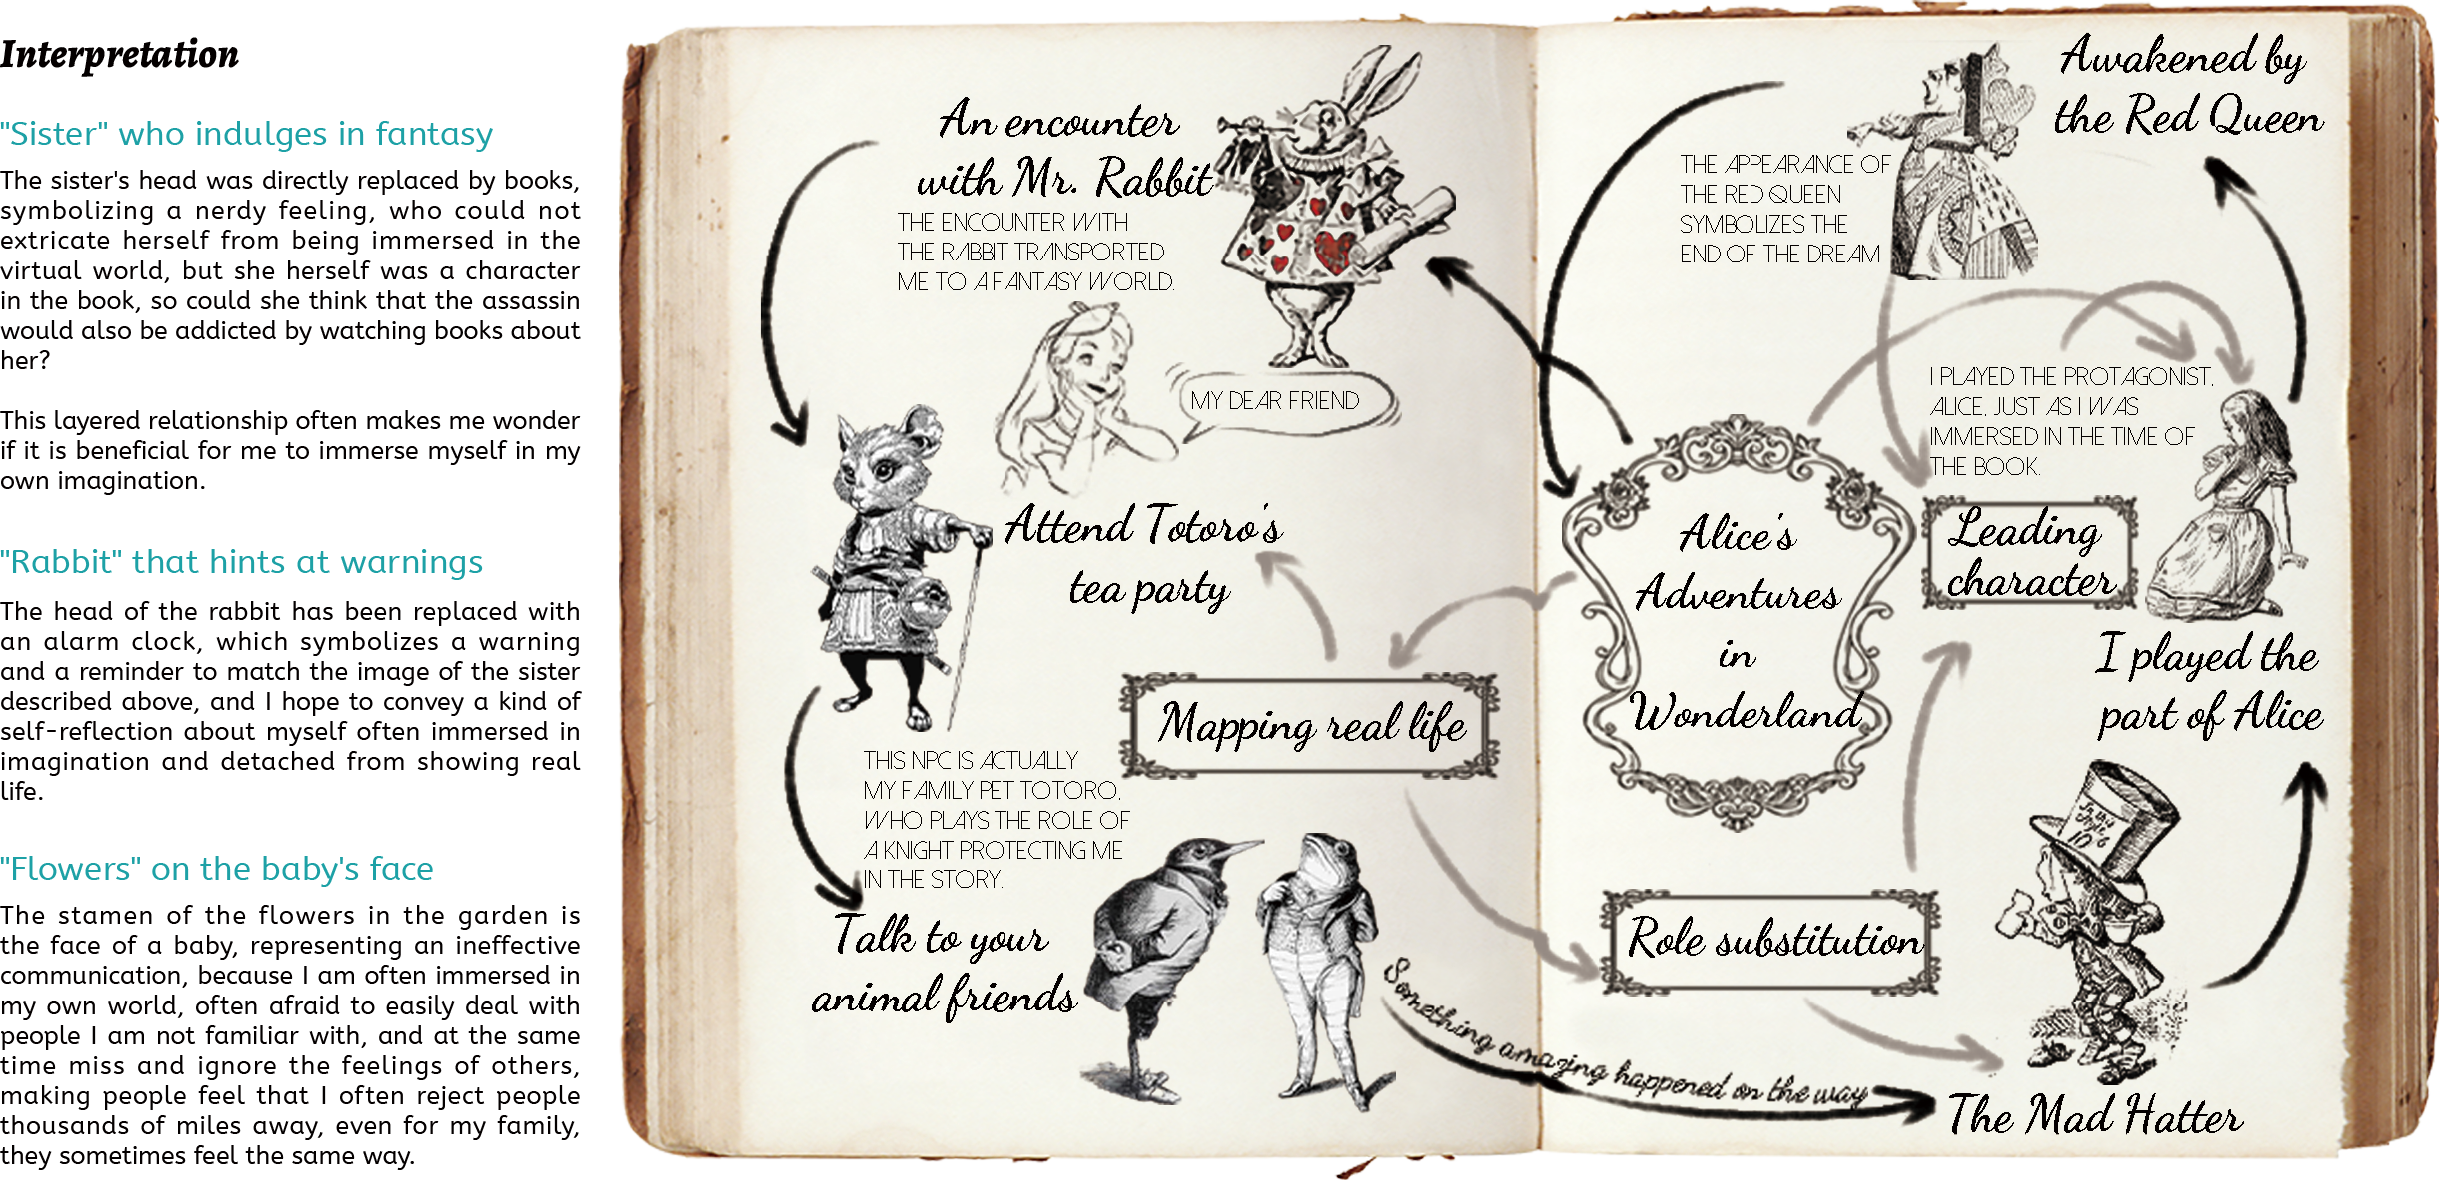 Interpretation
"Sister" who indulges in fantasy
The sister's head was directly replaced by books,
symbolizing a nerdy feeling, who could not
extricate herself from being immersed in the
virtual world, but she herself was a character
in the book, so could she think that the assassin
would also be addicted by watching books about
her?
This layered relationship often makes me wonder
if it is beneficial for me to immerse myself in my
own imagination.
"Rabbit" that hints at warnings
The head of the rabbit has been replaced with
an alarm clock, which symbolizes a warning
and a reminder to match the image of the sister
described above, and I hope to convey a kind of
self-reflection about myself often immersed in
imagination and detached from showing real
life.
"Flowers" on the baby's face
The stamen of the flowers in the garden is
the face of a baby, representing an ineffective
communication, because I am often immersed in
my own world, often afraid to easily deal with
people I am not familiar with, and at the same
time miss and ignore the feelings of others,
making people feel that I often reject people
thousands of miles away, even for my family,
they sometimes feel the same way.
An encounter
with Mr. Rabbit
THE ENCOUNTER WITH
THE RABBIT TRANSPORTED
ME TO A FANTASY WORLD.
MY DEAR FRIEND
Attend Totoro's
tea party
Mapping real life
THIS NPC IS ACTUALLY
MY FAMILY PET TOTORO,
WHO PLAYS THE ROLE OF
A KNIGHT PROTECTING ME
IN THE STORY.
Talk to your
animal friends
Something amazing happened on the way
Awakened by
the Red Queen
THE APPEARANCE OF
THE RED QUEEN
SYMBOLIZES THE
END OF THE DREAM
I PLAYED THE PROTAGONIST,
ALICE, JUST AS I WAS
IMMERSED IN THE TIME OF
THE BOOK.
Alice's
Adventures
in
Wonderland
Leading
character
I played the
part of Alice
Role substitution
In this
Style
10/6
The Mad Hatter